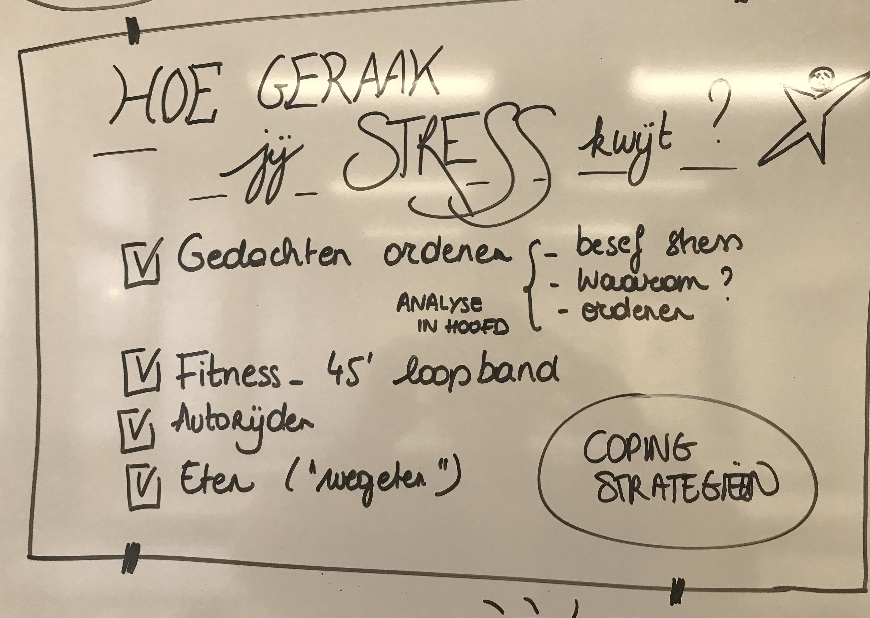 HOE GERAAK
jij STRESS kwijt ?
Gedachten ordenen
- besef stress
- Waarom ?
- ordenen
ANALYSE
IN HOOFD
Fitness - 45' loopband
Autorijden
Eten ("wegeten")
COPING
STRATEGIËN